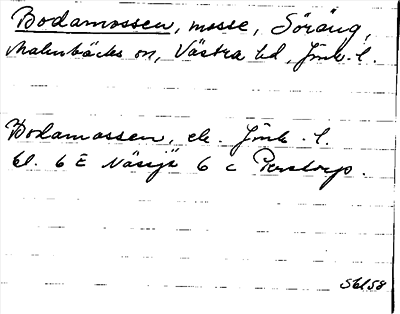 Bodamossen, mosse, Söräng,
Malmbäcks sn, Västra hd, Jönk. l.
Bodamossen, ek. Jönk. l.
bl. 6 E Nässjö 6 c Perstorp.
Skl 58